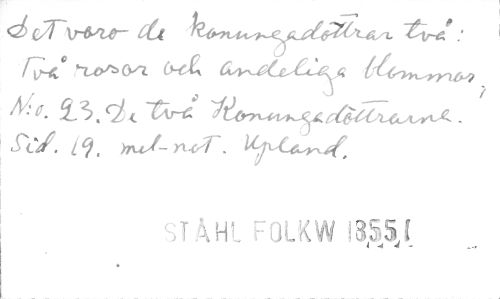 Det voro de konungadöttrar två:
Två rosor och andeliga blommor,
N:o. 23. De två Konungadöttrarne.
Sid. 19. mel-not. Upland.
STÅHL FOLKW 1855,1